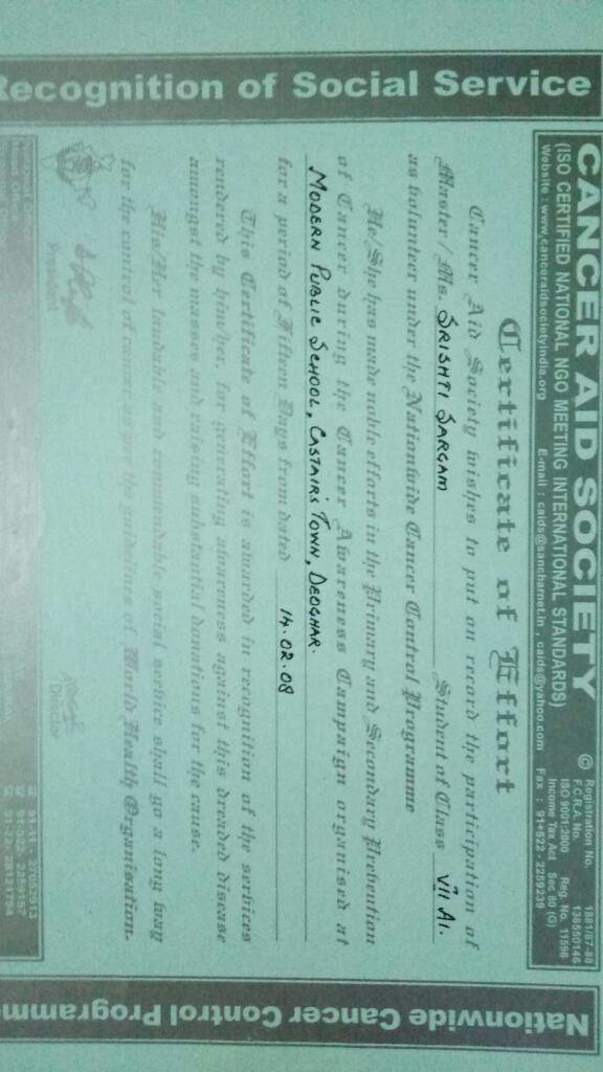 Recognition of Social Service
CANCER AID SOCIETY
(ISO CERTIFIED NATIONAL NGO MEETING INTERNATIONAL STANDARDS)
Website : www.canceraidsocietyindia.org E-mail : caids@sancharnet.in , caids@yahoo.com Fax : 91+522 - 2259239
© Registration No. 1881/87-88
F.C.R.A. No. 136550146
ISO 9001:2000 Reg. No. 11598
Income Tax Act Sec 80 (G)
Certificate of Effort
Cancer Aid Society wishes to put on record the participation of
Master / Ms. SRISHTI SARGAM Student of Class VII A1.
as volunteer under the Nationwide Cancer Control Programme
He/She has made noble efforts in the Primary and Secondary Prevention
of Cancer during the Cancer Awareness Campaign organised at
MODERN PUBLIC SCHOOL, CASTAIR'S TOWN, DEOGHAR.
for a period of Fifteen Days from dated 14.02.08
This Certificate of Effort is awarded in recognition of the services
rendered by him/her, for generating awareness against this dreaded disease
amongst the masses and raising substantial donations for the cause.
His/Her laudable and commendable social service shall go a long way
for the control of cancer as per the guidelines of World Health Organisation.
Director
Nationwide Cancer Control Programme